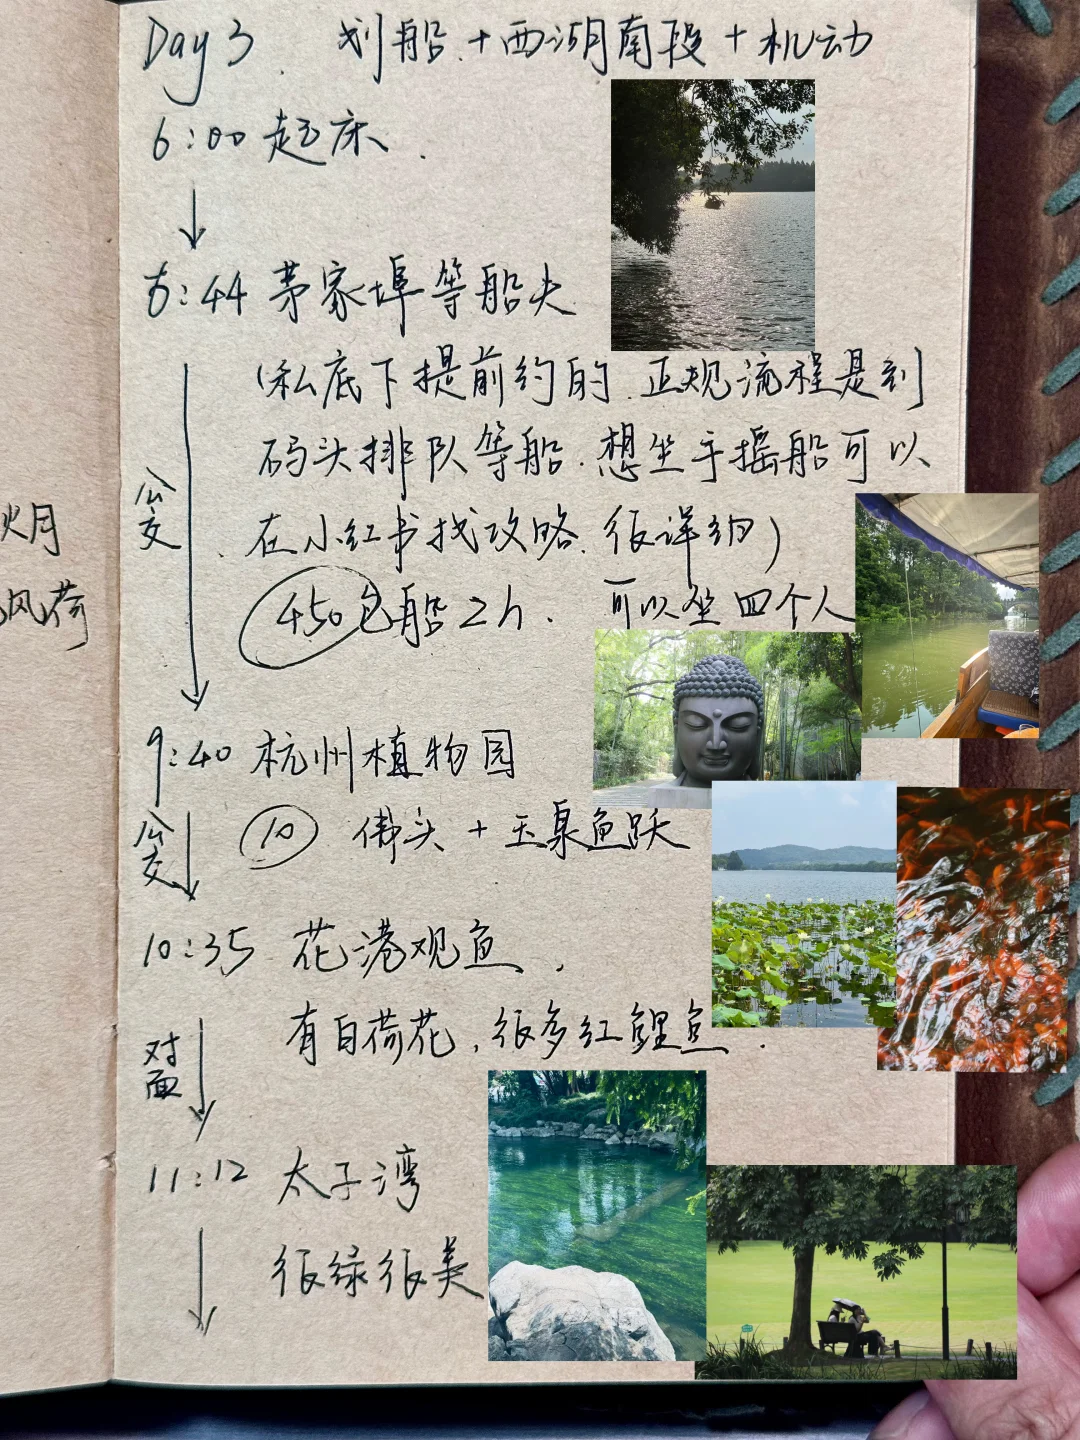 Day 3. 划船+西湖南段+机动
6:00 起床.
6:44 茅家埠等船夫
(私底下提前约的.正规流程是到
码头排队等船.想坐手摇船可以
公交
在小红书找攻略.很详细)
450包船2h. 可以坐四个人
9:40 杭州植物园
公交
10 佛头+玉泉鱼跃
10:35 花港观鱼.
有白荷花,很多红鲤鱼.
对面
11:12 太子湾
很绿很美
月
风荷